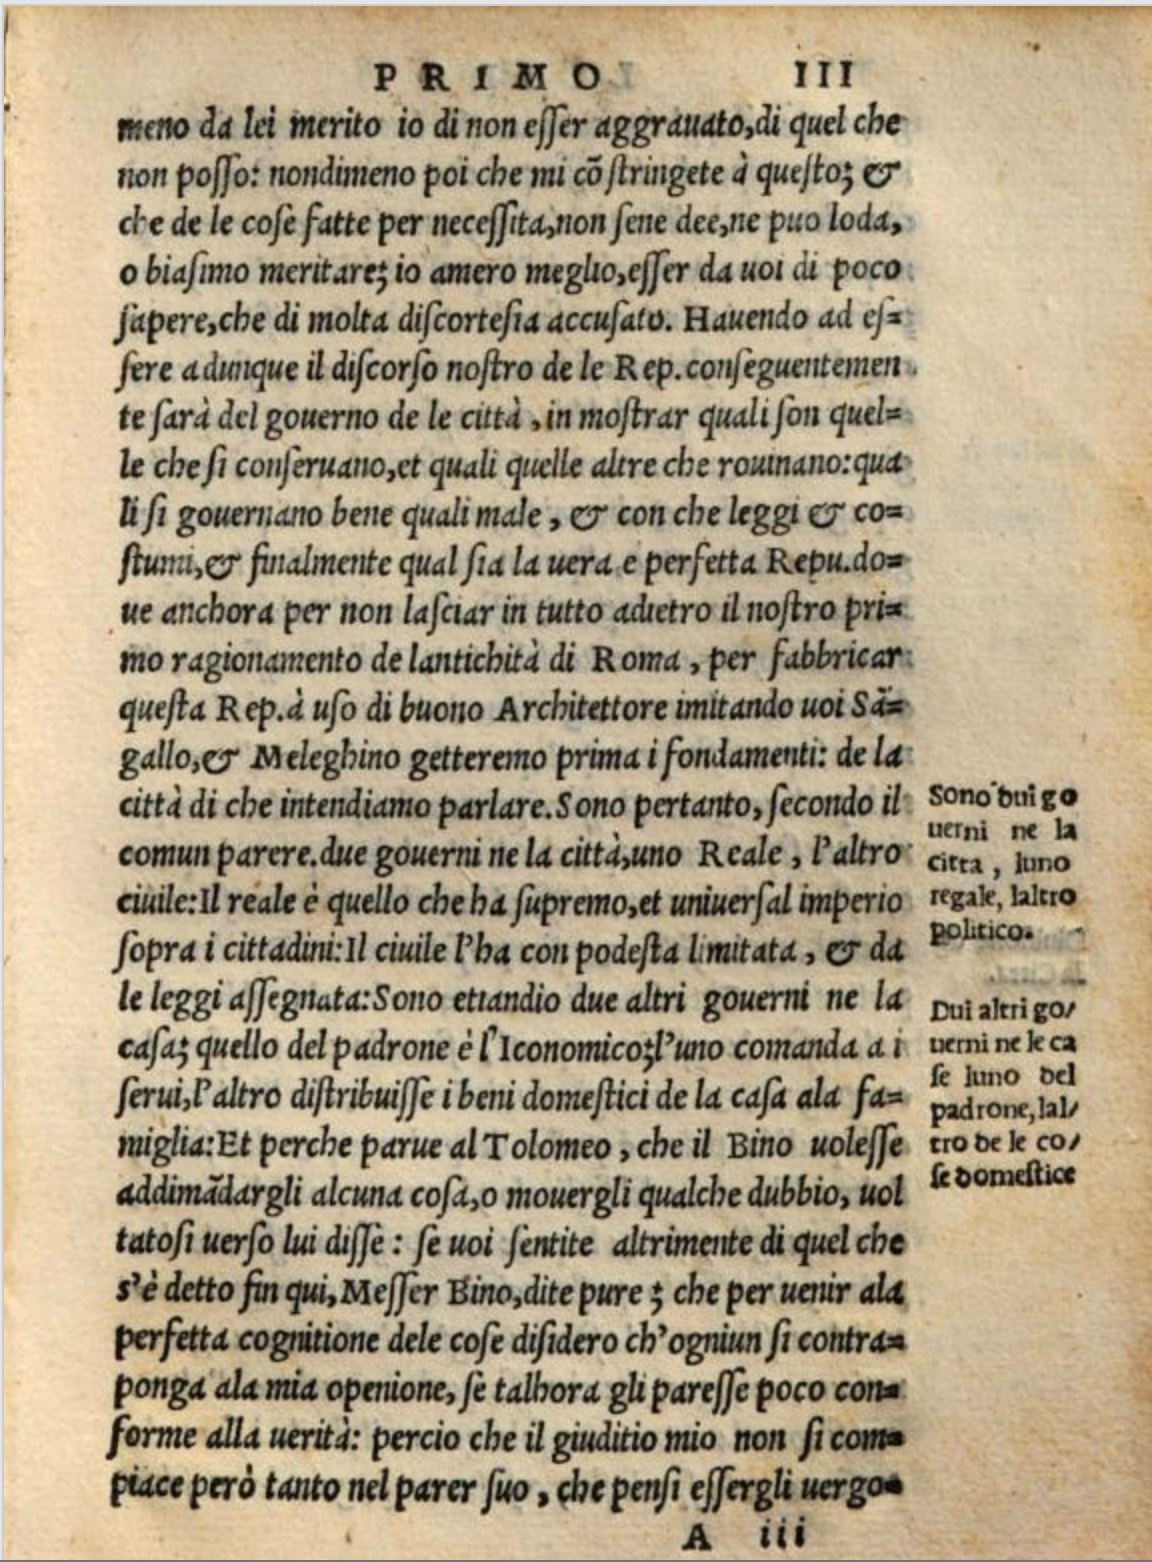 PRIMO III
meno da lei merito io di non eſſer aggrauato,di quel che
non poſſo: nondimeno poi che mi cõſtringete à queſto; &
che de le coſe fatte per neceſſita,non ſene dee,ne puo loda,
o biaſimo meritare; io amero meglio,eſſer da uoi di poco
ſapere,che di molta diſcorteſia accuſato. Hauendo ad eſ=
ſere adunque il diſcorſo noſtro de le Rep.conſeguentemen
te ſarà del gouerno de le città , in moſtrar quali ſon quel=
le che ſi conſeruano,et quali quelle altre che rouinano:qua
li ſi gouernano bene quali male , & con che leggi & co=
ſtumi,& finalmente qual ſia la uera e perfetta Repu.do=
ue anchora per non laſciar in tutto adietro il noſtro pri=
mo ragionamento de lantichità di Roma , per fabbricar
queſta Rep.à uſo di buono Architettore imitando uoi Sã=
gallo,& Meleghino getteremo prima i fondamenti: de la
città di che intendiamo parlare.Sono pertanto, ſecondo il
comun parere.due gouerni ne la città,uno Reale , l'altro
ciuile:Il reale è quello che ha ſupremo,et uniuerſal imperio
ſopra i cittadini:Il ciuile l'ha con podeſta limitata , & da
le leggi aſſegnata:Sono etiandio due altri gouerni ne la
caſa; quello del padrone è l'Iconomico;l'uno comanda a i
ſerui,l'altro diſtribuiſſe i beni domeſtici de la caſa ala fa=
miglia:Et perche parue al Tolomeo , che il Bino uoleſſe
addimãdargli alcuna coſa,o mouergli qualche dubbio, uol
tatoſi uerſo lui diſſe : ſe uoi ſentite altrimente di quel che
s'è detto fin qui, Meſſer Bino,dite pure ; che per uenir ala
perfetta cognitione dele coſe diſidero ch'ogniun ſi contra=
ponga ala mia openione, ſe talhora gli pareſſe poco con=
forme alla uerità: percio che il giuditio mio non ſi com=
piace però tanto nel parer ſuo , che penſi eſſergli uergo=
A iii
Sono dui go
uerni ne la
citta , luno
regale, laltro
politico.
Dui altri go/
uerni ne le ca
ſe luno del
padrone,lal/
tro de le co/
ſe domeſtice